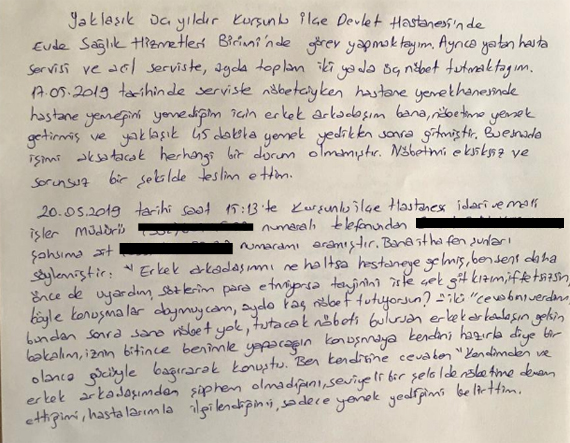 Yaklaşık üç yıldır Kurşunlu İlçe Devlet Hastanesi'nde
Evde Sağlık Hizmetleri Birimi'nde görev yapmaktayım. Ayrıca yatan hasta
servisi ve acil serviste, ayda toplam iki yada üç nöbet tutmaktayım.
17.05.2019 tarihinde serviste nöbetciyken hastane yemekhanesinde
hastane yemeğini yemediğim için erkek arkadaşım bana, nöbetime yemek
getirmiş ve yaklaşık 45 dakika yemek yedikten sonra gitmiştir. Bu esnada
işimi aksatacak herhangi bir durum olmamıştır. Nöbetimi eksiksiz ve
sorunsuz bir şekilde teslim ettim.
20.05.2019 tarihi saat 15:13'te Kurşunlu İlçe Hastanesi idari ve mali
işler Müdürü numaralı telefonundan
şahsıma ait numaramı aramıştır. Bana ithafen şunları
söylemiştir: "Erkek arkadaşınmı ne haltsa hastaneye gelmiş, ben seni daha
önce de uyardım, sözlerim para etmiyorsa tayinini iste çek git kızım, iffetsizsin,
böyle konuşmalar duymuycam, ayda kaç nöbet tutuyorsun? "iki" cevabını verdim,
bundan sonra sana nöbet yok, tutacak nöbeti bulursan erkek arkadaşın gelsin
bakalım, iznin bitince benimle yapacağın konuşmaya kendini hazırla diye bir
olanca gücüyle bağırarak konuştu. Ben kendisine cevaben "Kendimden ve
erkek arkadaşımdan şüphem olmadığını, seviyeli bir şekilde nöbetime devam
ettiğimi, hastalarımla ilgilendiğimi, sadece yemek yediğimi belirttim.